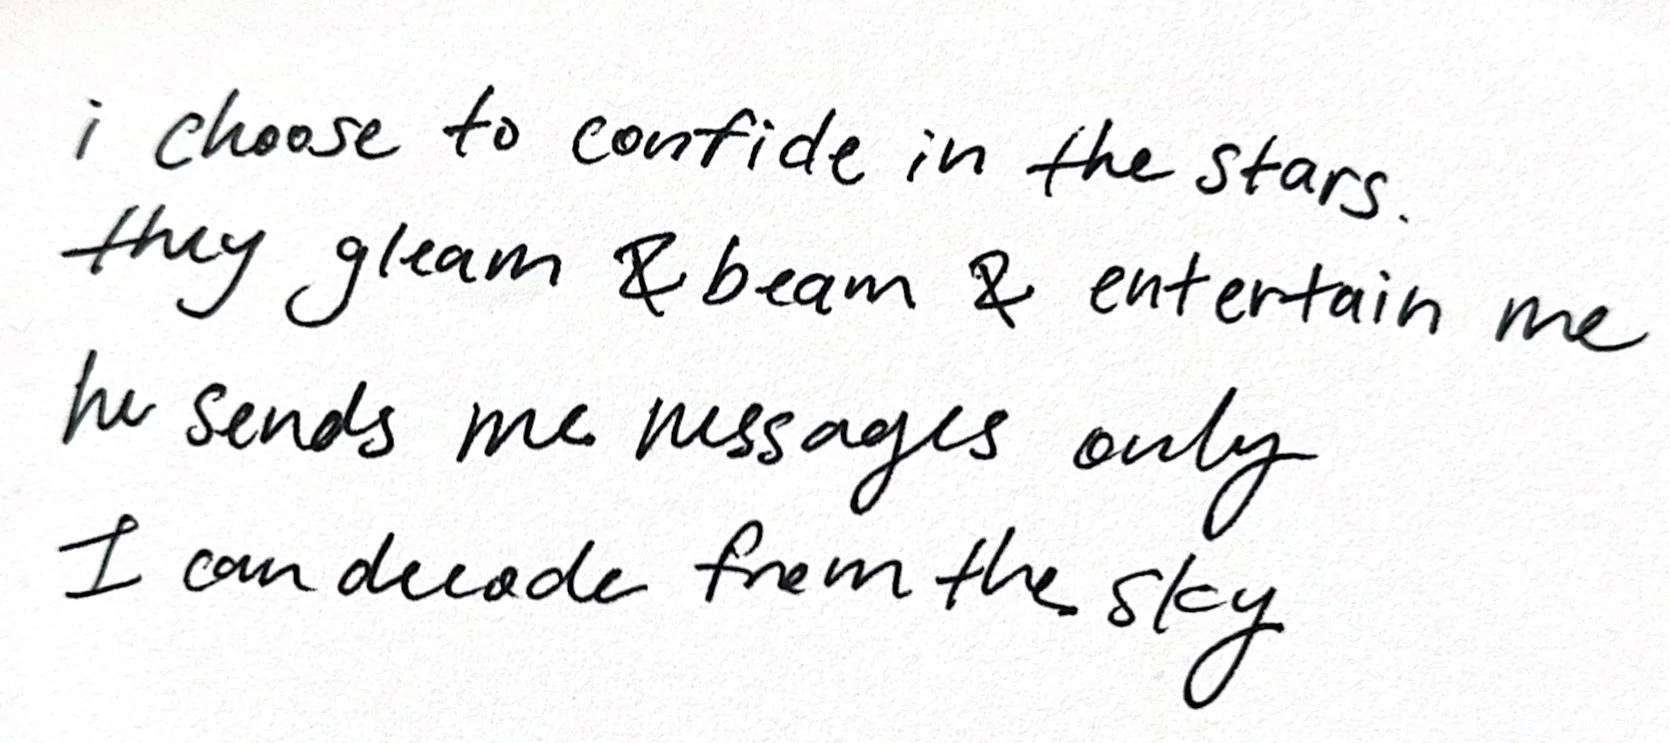 i choose to confide in the stars.
they gleam & beam & entertain me
he sends me messages only
I can decode from the sky